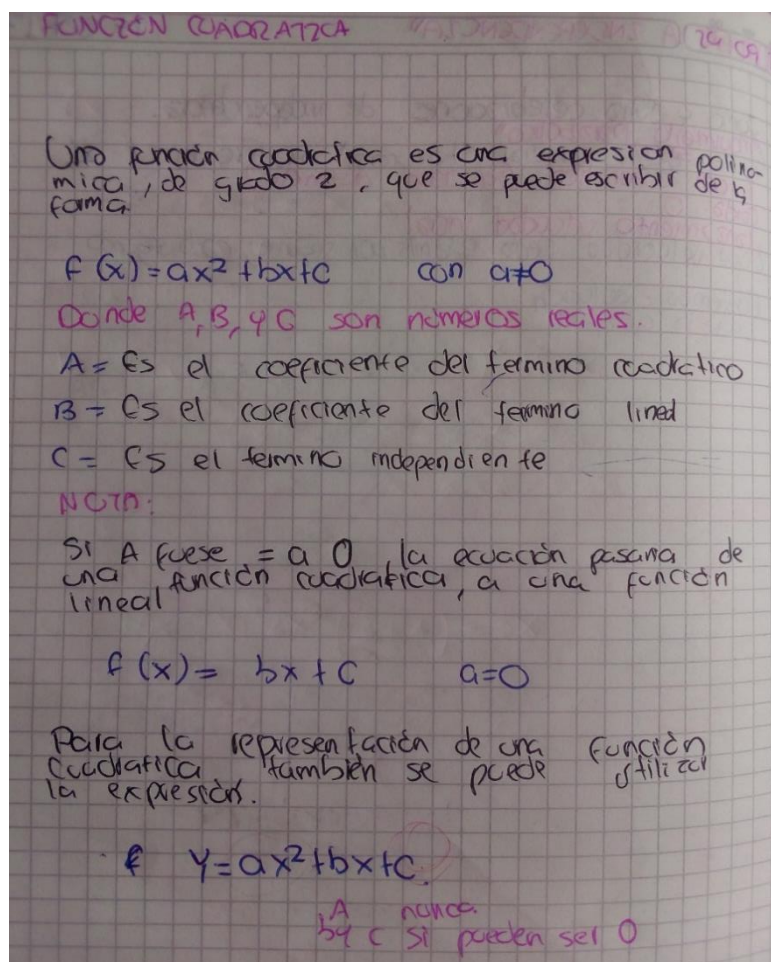 FUNCIÓN CUADRATICA 24/09
Una función cuadratica es una expresion polino-
mica, de grado 2, que se puede escribir de la
forma
f(x)=ax²+bx+c con a≠0
Donde A, B, y C son números reales.
A= Es el coeficiente del termino cuadratico
B= Es el coeficiente del termino lineal
C= Es el termino independiente
NOTA:
Si A fuese = a 0, la ecuación pasaria de
una función cuadratica, a una función
lineal
f(x)= bx+c a=0
Para la representación de una función
cuadratica también se puede utilizar
la expresión.
y=ax²+bx+c.
A nunca
b y c si pueden ser 0